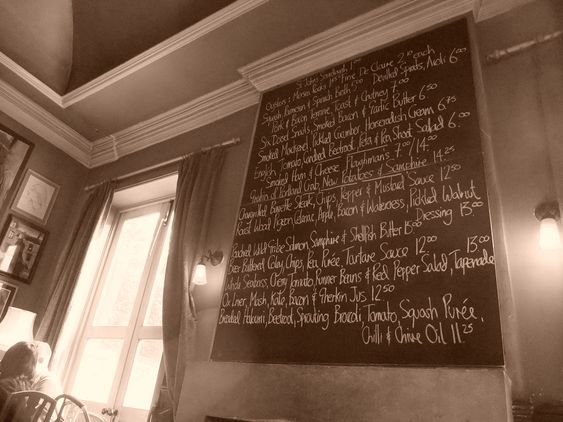 St Johns Sourdough 1.00
Oysters: Maldon Rocks 1.80 Fine De Claire 2.10 each
Squash, Parmesan & Spinach Bake 5.00 Devilled Sprats, Aioli 6.00
Pork & Bacon Terrine, Toast & Chutney 7.00
Six Dozen Snails, Smoked Bacon & Garlic Butter 6.50
Smoked Mackerel, Pickled Cucumber, Horseradish Cream 6.75
English Tomato, Candied Beetroot, Feta & Pea Shoot Salad 6.00
Smoked Ham & Cheese Ploughmans 7.00/14.00
Gratin of Portland Crab, New Potatoes & Samphire 14.25
Chargrilled Bavette Steak, Chips, Pepper & Mustard Sauce 12.50
Roast Wood Pigeon, Celeriac, Apple, Bacon & Watercress, Pickled Walnut
Dressing 13.00
Poached Wild Salmon, Samphire & Shellfish Bitter 15.00
Beer Battered Coley, Chips, Pea Purée Tartare Sauce 12.00
Whole Seabass, Cherry Tomato, Runner Beans & Red Pepper Salad, Tapenade 13.00
Ox Liver, Mash, Kale, Bacon & Gherkin Jus 12.50
Breaded Haloumi, Beetroot, Sprouting Brocoli, Tomato, Squash Purée,
Chilli & Chive Oil 11.25